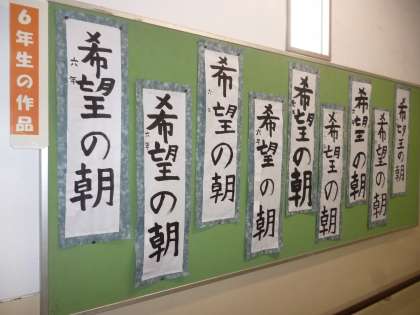 6年生の作品
希望の朝
六年
希望の朝
六年
希望の朝
六
希望の朝
六年
希望の朝
希望の朝
希望の朝
希望の朝
希望の朝